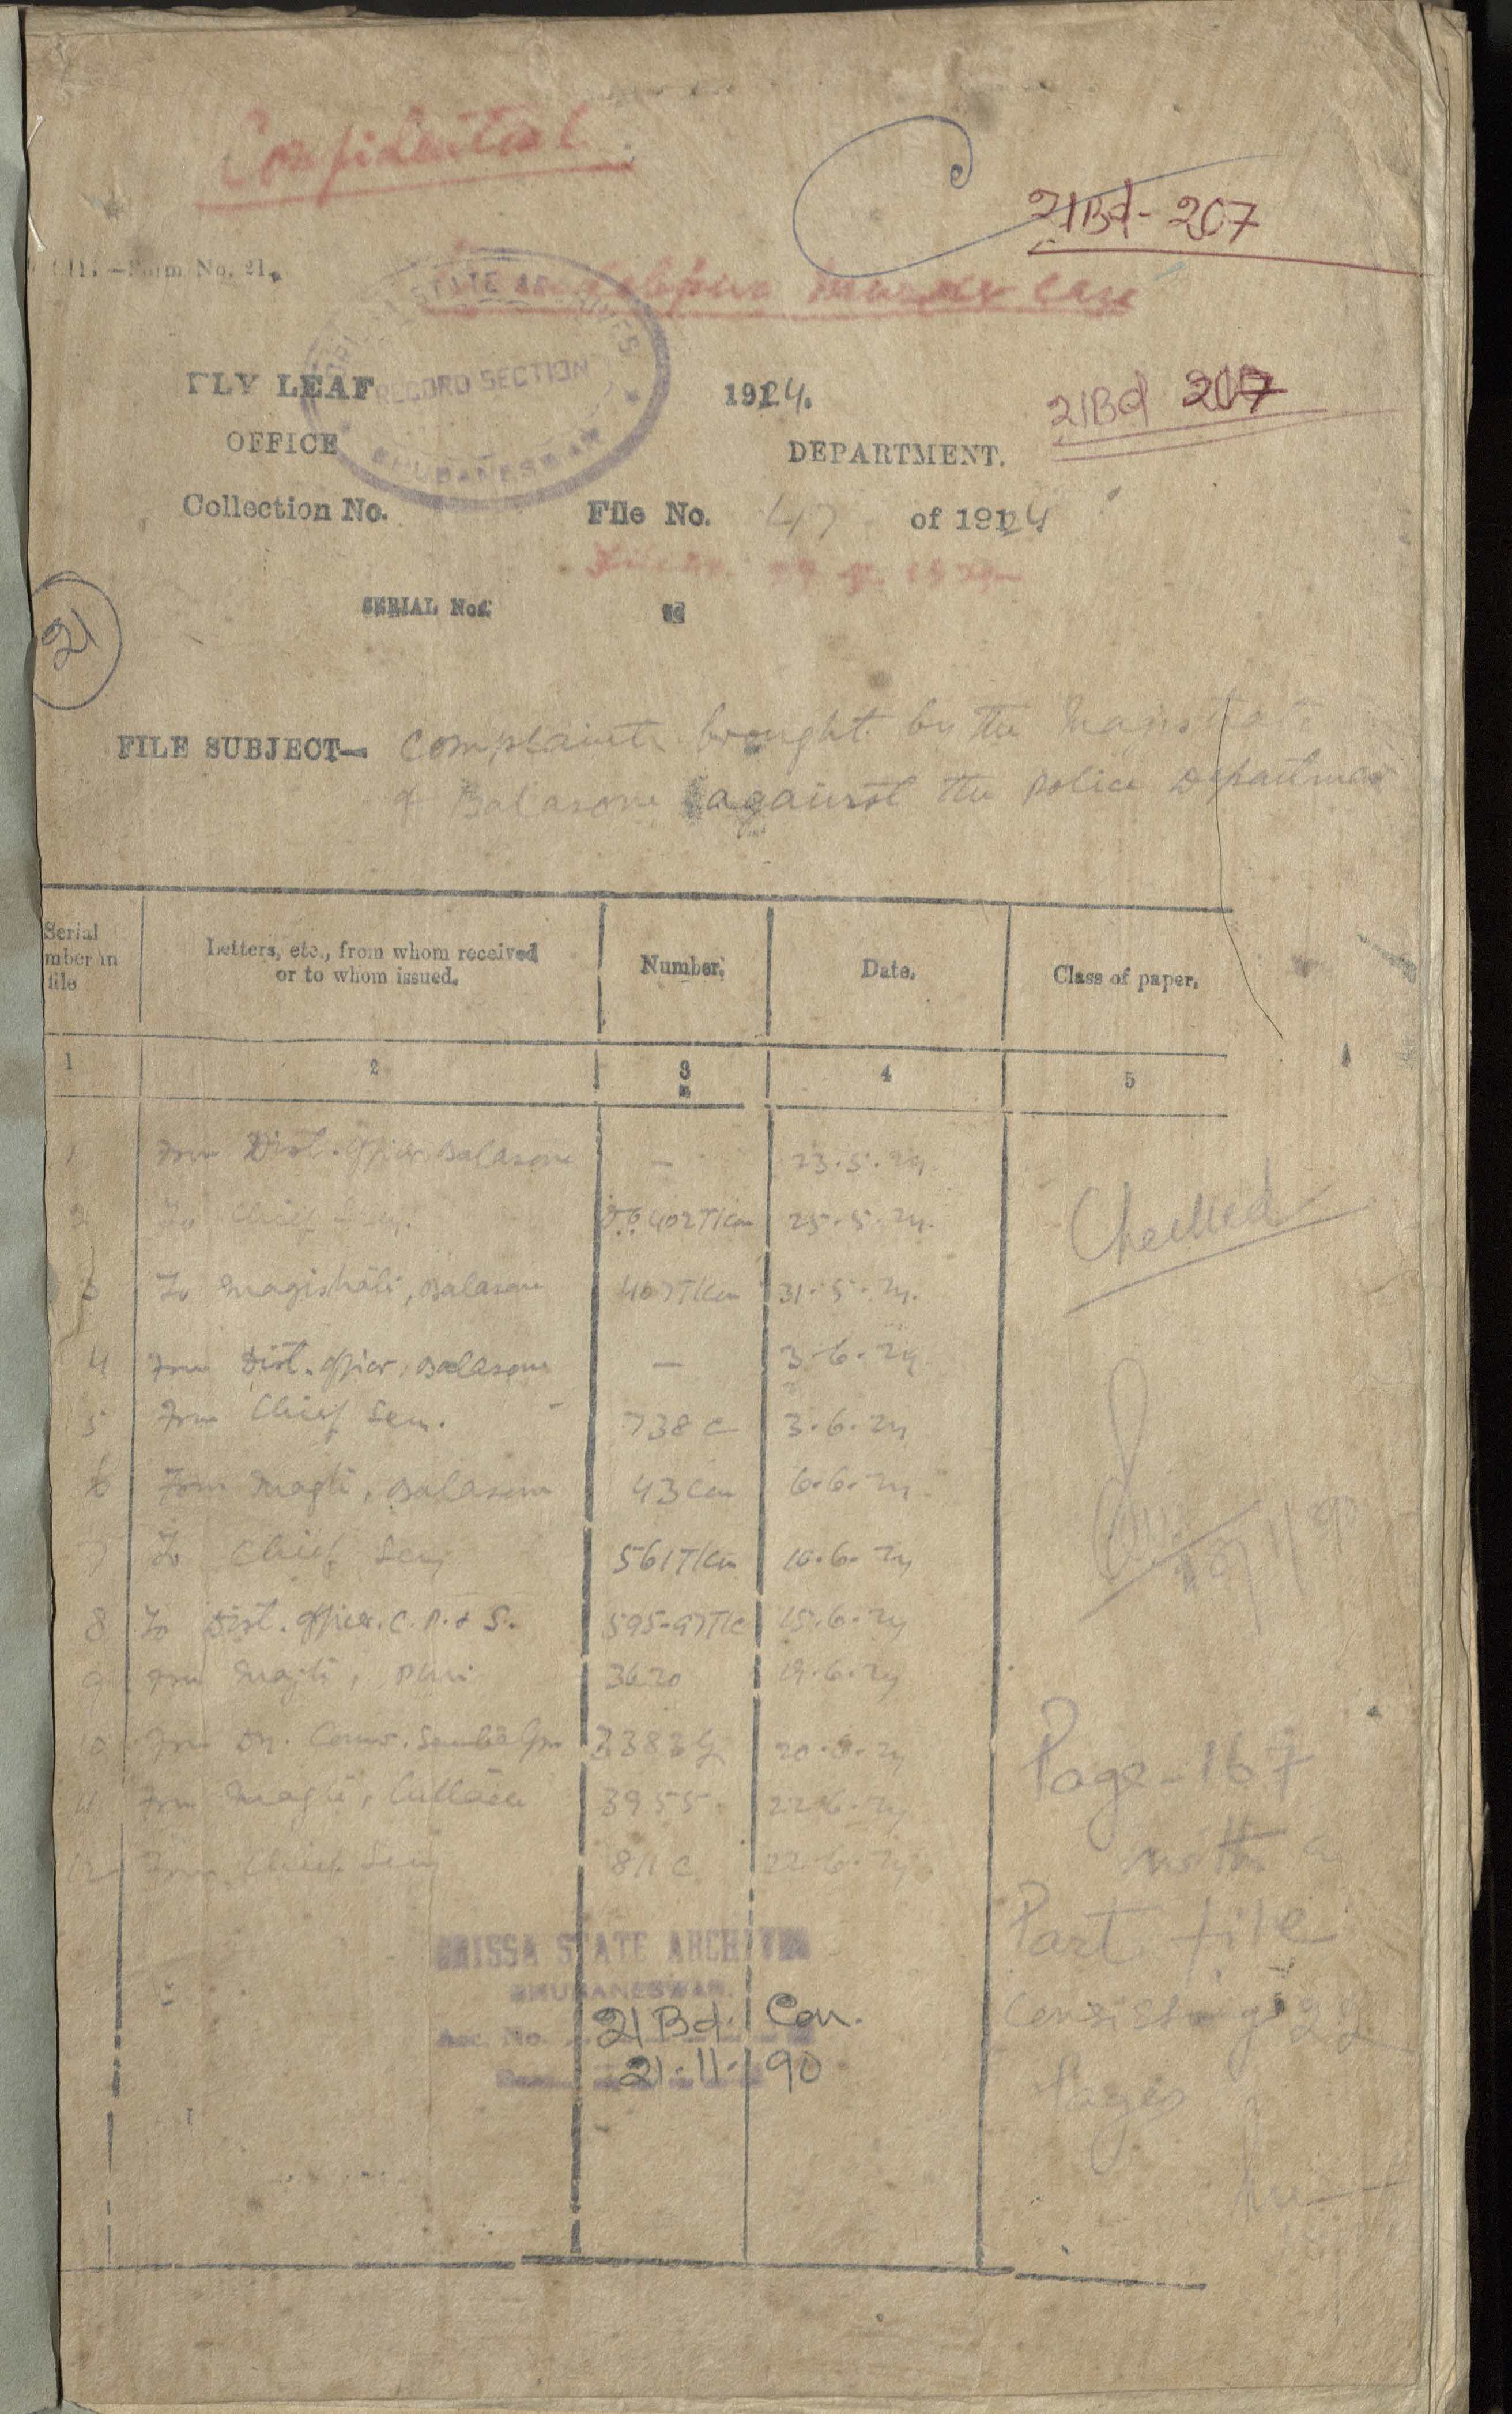 Confidential
21Bd - 207
Form No. 21.
murder case
STATE ARCHIVES
RECORD SECTION
BHUBANESWAR
FLY LEAF 1924.
21Bd 207
OFFICE DEPARTMENT.
Collection No. File No. 47 of 1924
SERIAL Nos.
21
FILE SUBJECT— Complaints brought by the Magistrate
of Balasore against the Police Department
Serial
mber in
file
Letters, etc., from whom received
or to whom issued.
Number.
Date.
Class of paper.
1 2 3 4 5
1 From Dist. Officer Balasore — 23.5.24
2 To Chief Secy. 402T/Con 25.5.24
3 To Magistrate, Balasore 407T/Con 31.5.24
Checked
4 From Dist. Officer, Balasore — 3.6.24
5 From Chief Secy. 738 C 3.6.24
6 From Magte, Balasore 43 Con 6.6.24
7 To Chief Secy 561T/Con 10.6.24
8 To Dist. Officer. C. P. & S. 595-97T/C 15.6.24
9 From Magte, Puri 3620 19.6.24
10 From Dy. Comr. Sambalpur 3383 G 20.6.24
11 From Magte, Cuttack 3955 22.6.24
12 From Chief Secy 811 C 22.6.24
Page - 167
with
Part file
Consisting
Pages
ORISSA STATE ARCHIVES
BHUBANESWAR.
Acc. No. 21 Bd. Con.
21.11.90